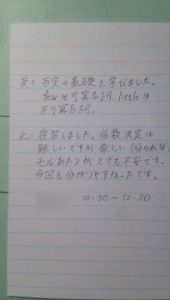 英: 否定の基礎を学びました。
fewは可算名詞、littleは
不可算名詞。
化: 復習しました。係数決定は
難しいですが楽しい(分かれば)。
モルあたりがとても不安です。
今回も分かりやすかったです。
10:30〜12:30